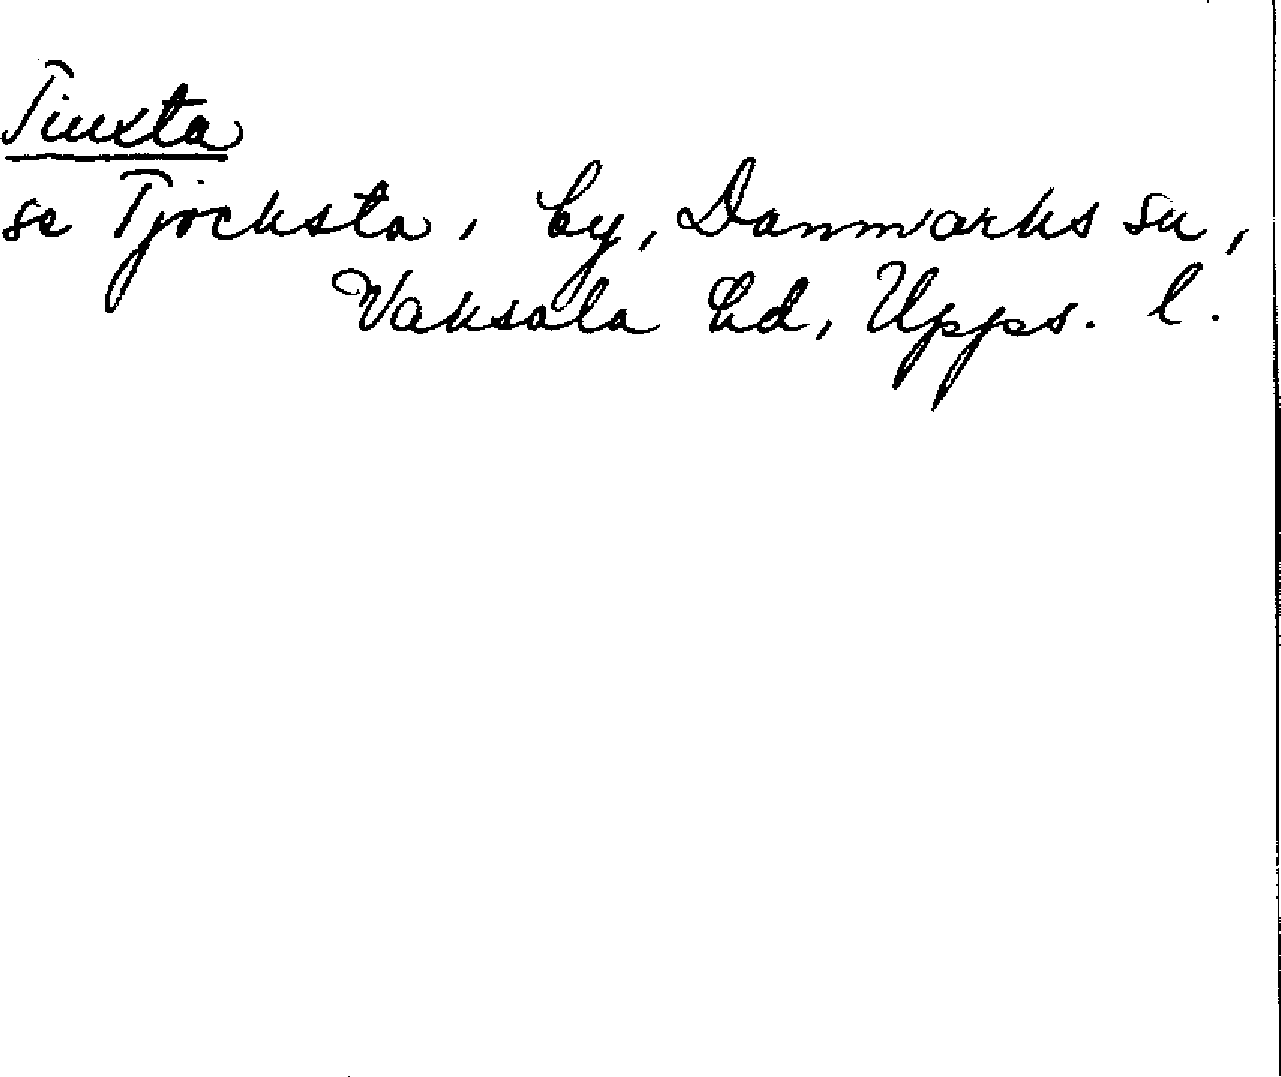 Tiuxta
se Tjocksta, by, Danmarks sn,
Vaksala hd, Upps. l.